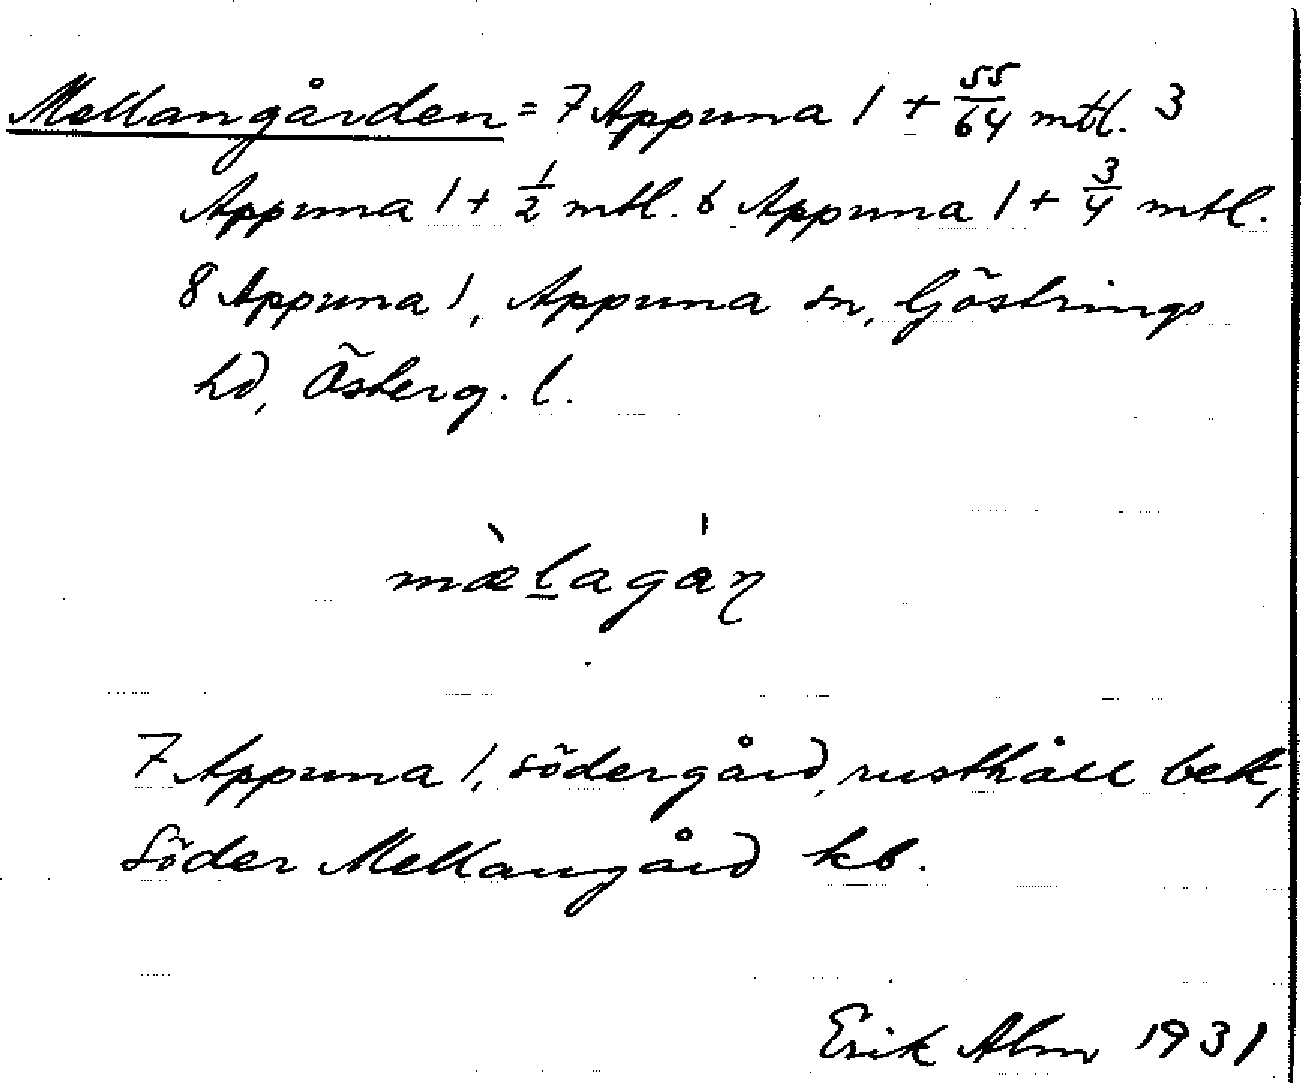 Mellangården = 7 Appuna 1 + 55/64 mtl. 3
Appuna 1 + 1/2 mtl. 6 Appuna 1 + 3/4 mtl.
8 Appuna 1, Appuna sn, Göstrings
hd, Österg. l.
mæ̀lagáɳ
7 Appuna 1, södergård, rusthåll bet,
Söder Mellangård kb.
Erik Abm 1931